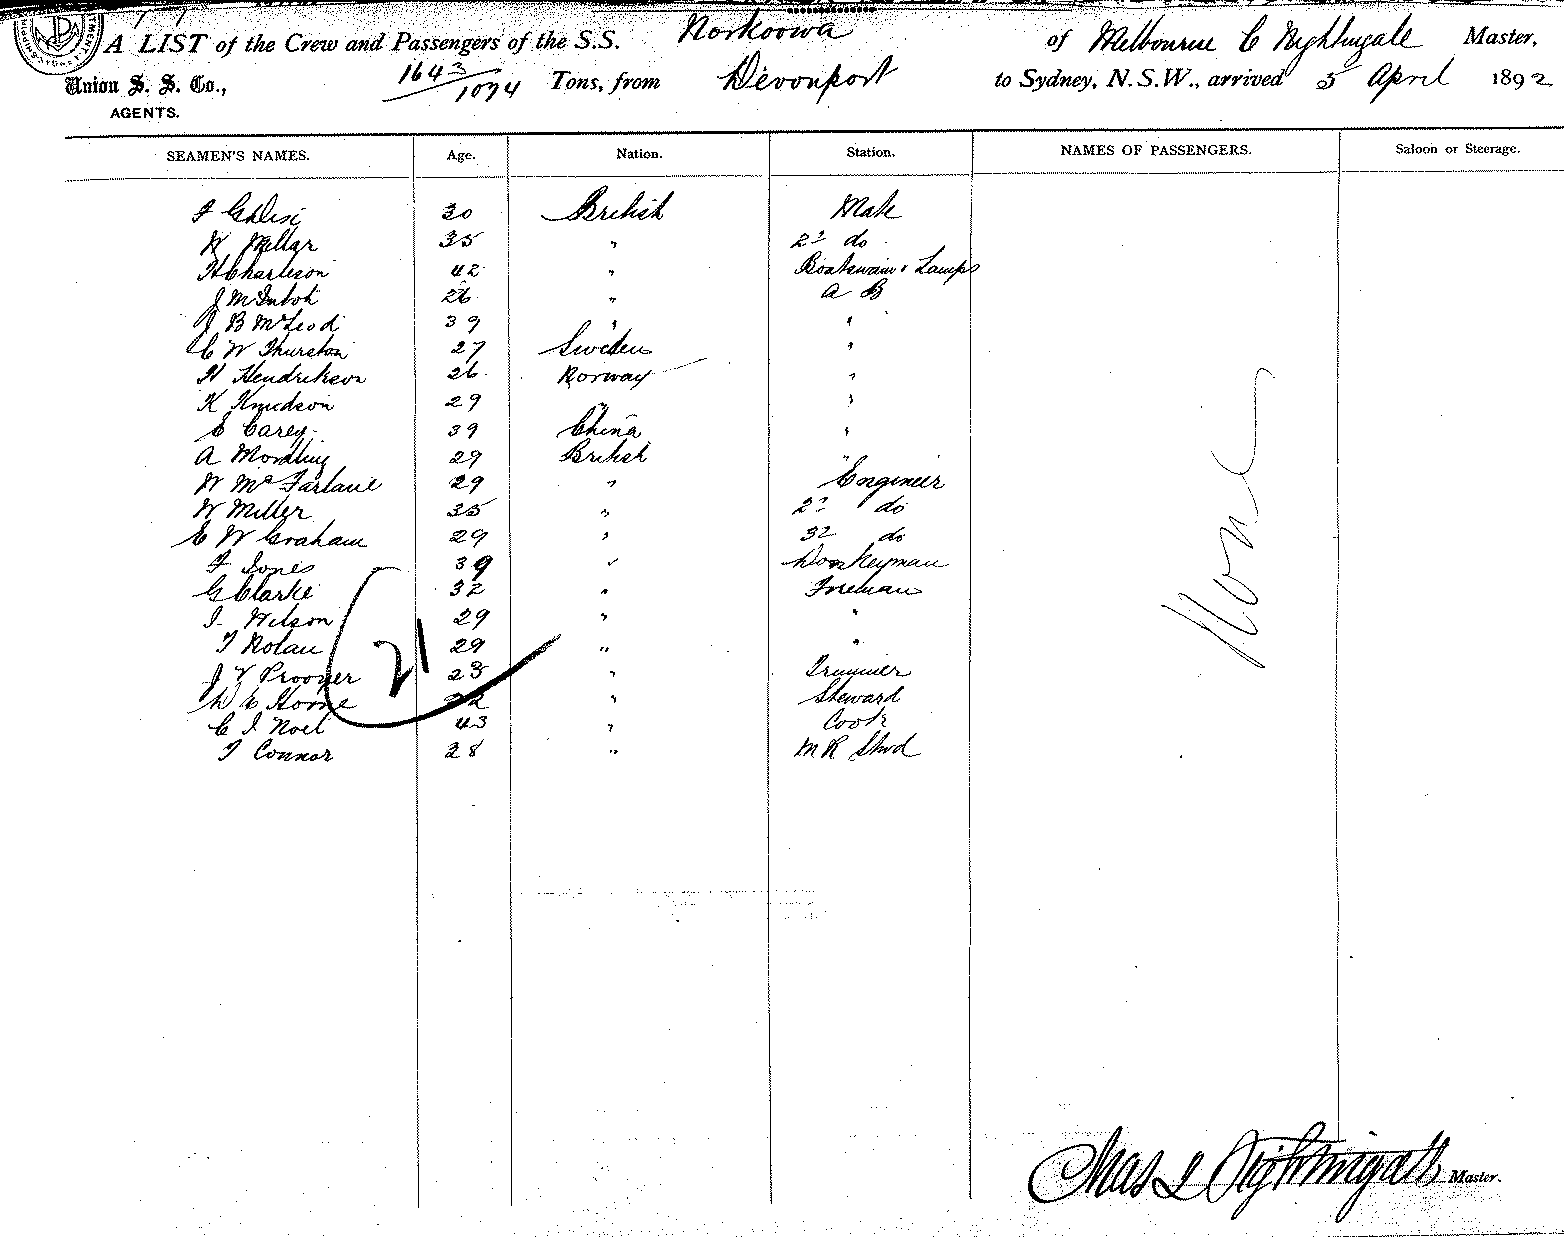 A LIST of the Crew and Passengers of the S.S. Norkoowa of Melbourne C Nightingale Master,
Union S. S. Co., 1643/1094 Tons, from Devonport to Sydney, N.S.W., arrived 5 April 1892
AGENTS.
SEAMEN'S NAMES. Age. Nation. Station. NAMES OF PASSENGERS. Saloon or Steerage.
30 British Mate
W Millar 35 " 2d do
H Charleson 42 " Boatswain & Lamps
J McIntosh 26 " A B
J B McLeod 39 " "
C W Thurston 27 Sweden "
H Hendrikson 26 Norway "
K Knudson 29 " "
E Carey 39 China "
A 29 British "
W McFarlane 29 " Engineer
W Miller 35 " 2d do
E W Graham 29 " 3d do
F Jones 39 " Donkeyman
G Clarke 32 " Fireman
J Wilson 29 " "
T Nolan 29 " "
J 23 " Trimmer
Horne 22 " Steward
C J Noel 43 " Cook
T Connor 28 " M R Stwd
21
None
Chas J Nightingale Master.